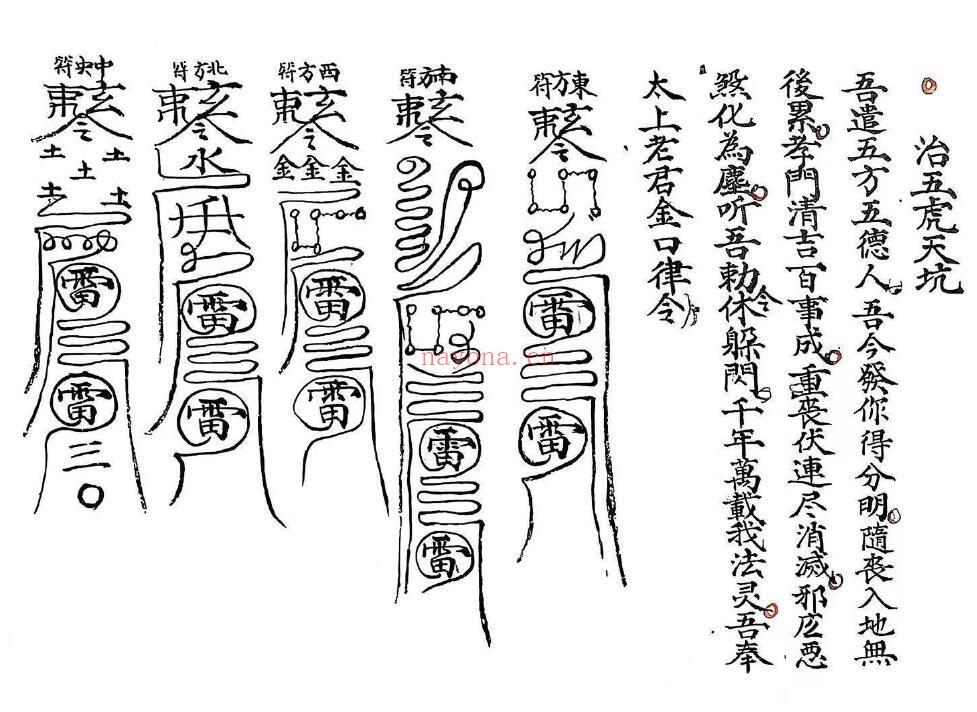 治五虎天坑
吾遣五方五德人吾今發你得分明隨喪入地無
後累孝門清吉百事成重喪伏連尽消滅邪恶
煞化為塵听吾勅令休躲閃千年萬載我法灵吾奉
太上老君金口律令
東方符
玄東令
雷
雷
南方符
玄東令
雷
雷
西方符
玄東令
金金金
雷
雷
北方符
玄東令
水
雷
雷
中央符
玄東令
土土土土土
雷
雷
三
nayona.cn